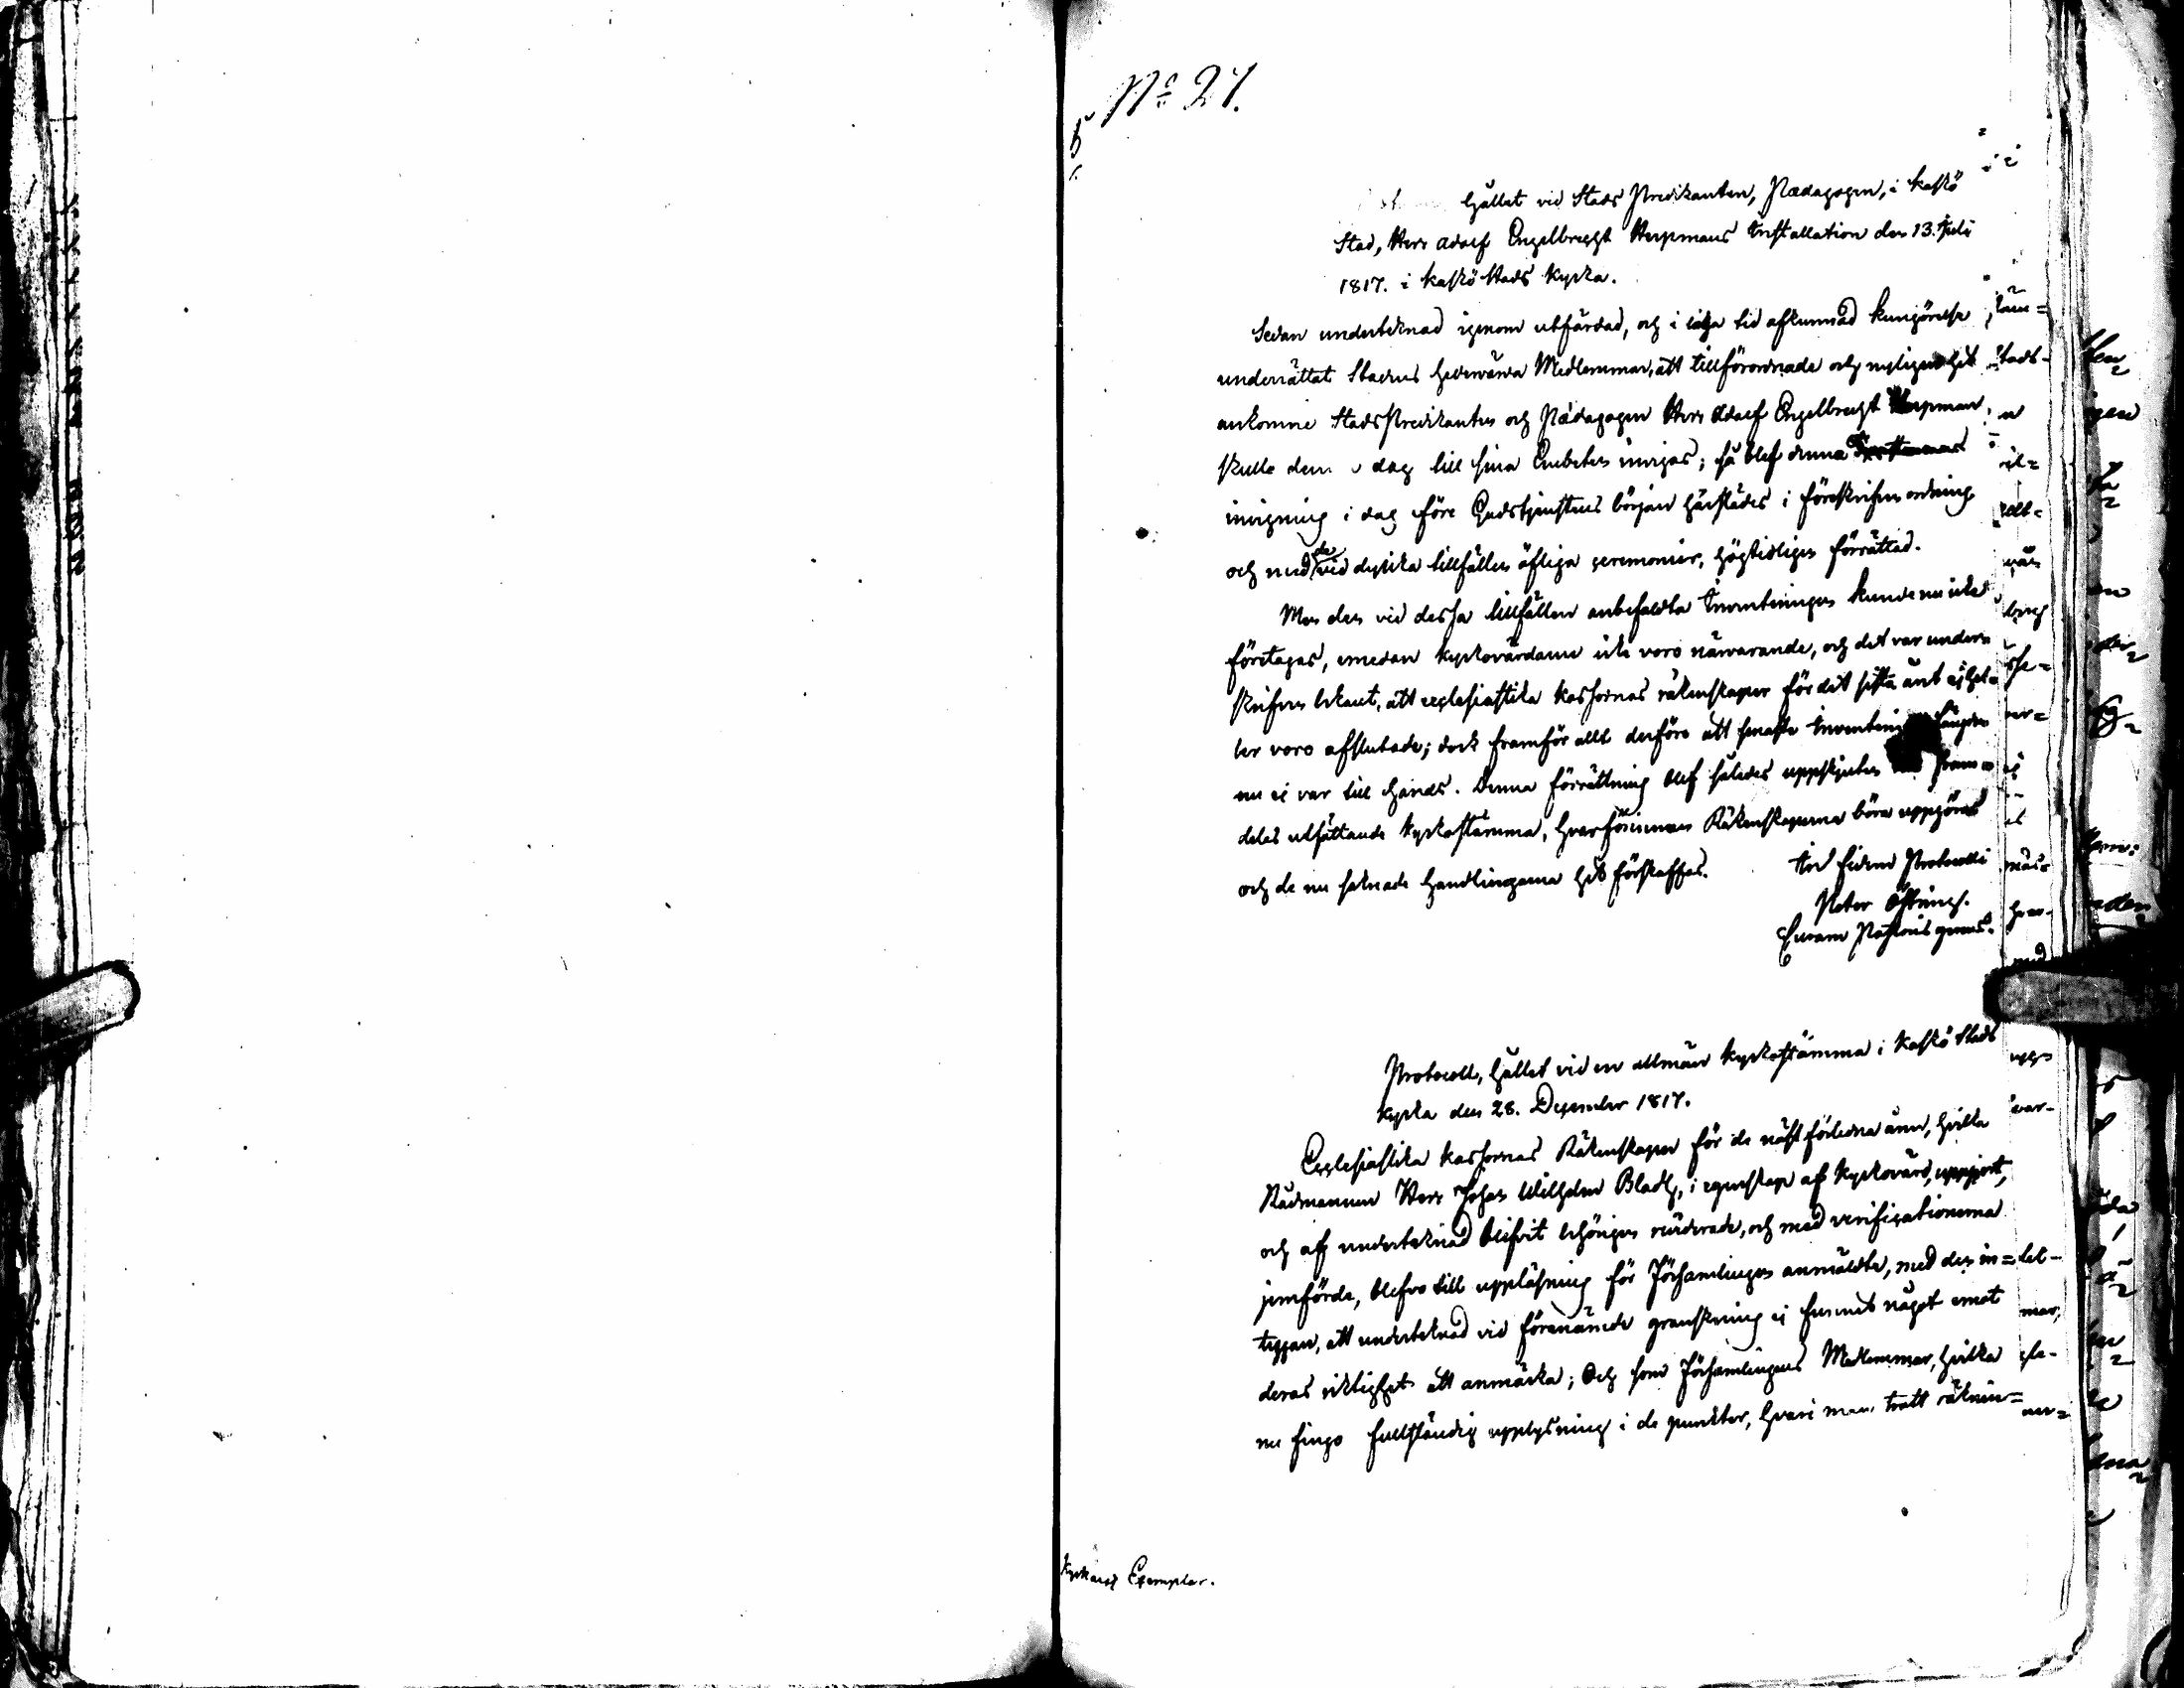 No 27.
hållet vid Stads Predikanten, Pædagogen, i Kaskö
Stad, Herr Adolf Engelbrecht Herpmans Installation den 13. Juli
1817. i Kaskö Stads Kyrka.
Sedan undertecknad igenom utfärdad, och i laga tid afkunnad kungörelse
underrättat Stadens hedervärda Medlemmar, att tillförordnade och nyligen hit
ankomne StadsPredikanten och Pædagogen Herr Adolf Engelbrecht Herpman,
skulle denna dag till sina Embeten invigas; så blef denna
invigning i dag före Gudstjenstens början härstädes i föreskrifven ordning
och med de vid dylika tillfällen öfliga ceremonier, högtidligen förrättad.
Men den vid dessa tillfällen anbefaldta Inventeringen kunde nu icke
företagas, emedan kyrkovärdarne icke voro närvarande, och det var under-
skrifven bekant, att ecclesiastika Kassornas räkenskaper för det sista året ej hel-
ler voro afslutade; dock framför allt derföre att senaste Inventerings Längden
nu ej var till hands. Denna förrättning blef således uppskjuten fram-
deles utsättande Kyrkostämma, hvarförinnan Räkenskaperna böra uppgöras
och de nu saknade Handlingarna hit förskaffas.
In fidem Protocolli
Peter Östring.
Curam Pastoris gerens.
Protocoll, hållet vid en allmän Kyrkostämma i Kaskö Stads
Kyrka den 28. December 1817.
Ecclesiastika Kassornas Räkenskaper för de näst förledna åren, hvilka
Rådmannen Herr Johan Wilhelm Bladh, i egenskap af Kyrkovärd, uppgjort,
och af undertecknad blifvit behörigen reviderade, och med verificationerna
jemförde, blefvo till uppläsning för Församlingen anmäldte, med den in-
tygan, att undertecknad vid förenämnde granskning ej funnit något emot
deras riktighet att anmärka; Och som Församlingens Medlemmar, hvilka
nu fingo fullständig upplysning i de punkter, hvari man trott räknin-
Kyrkans Exemplar.